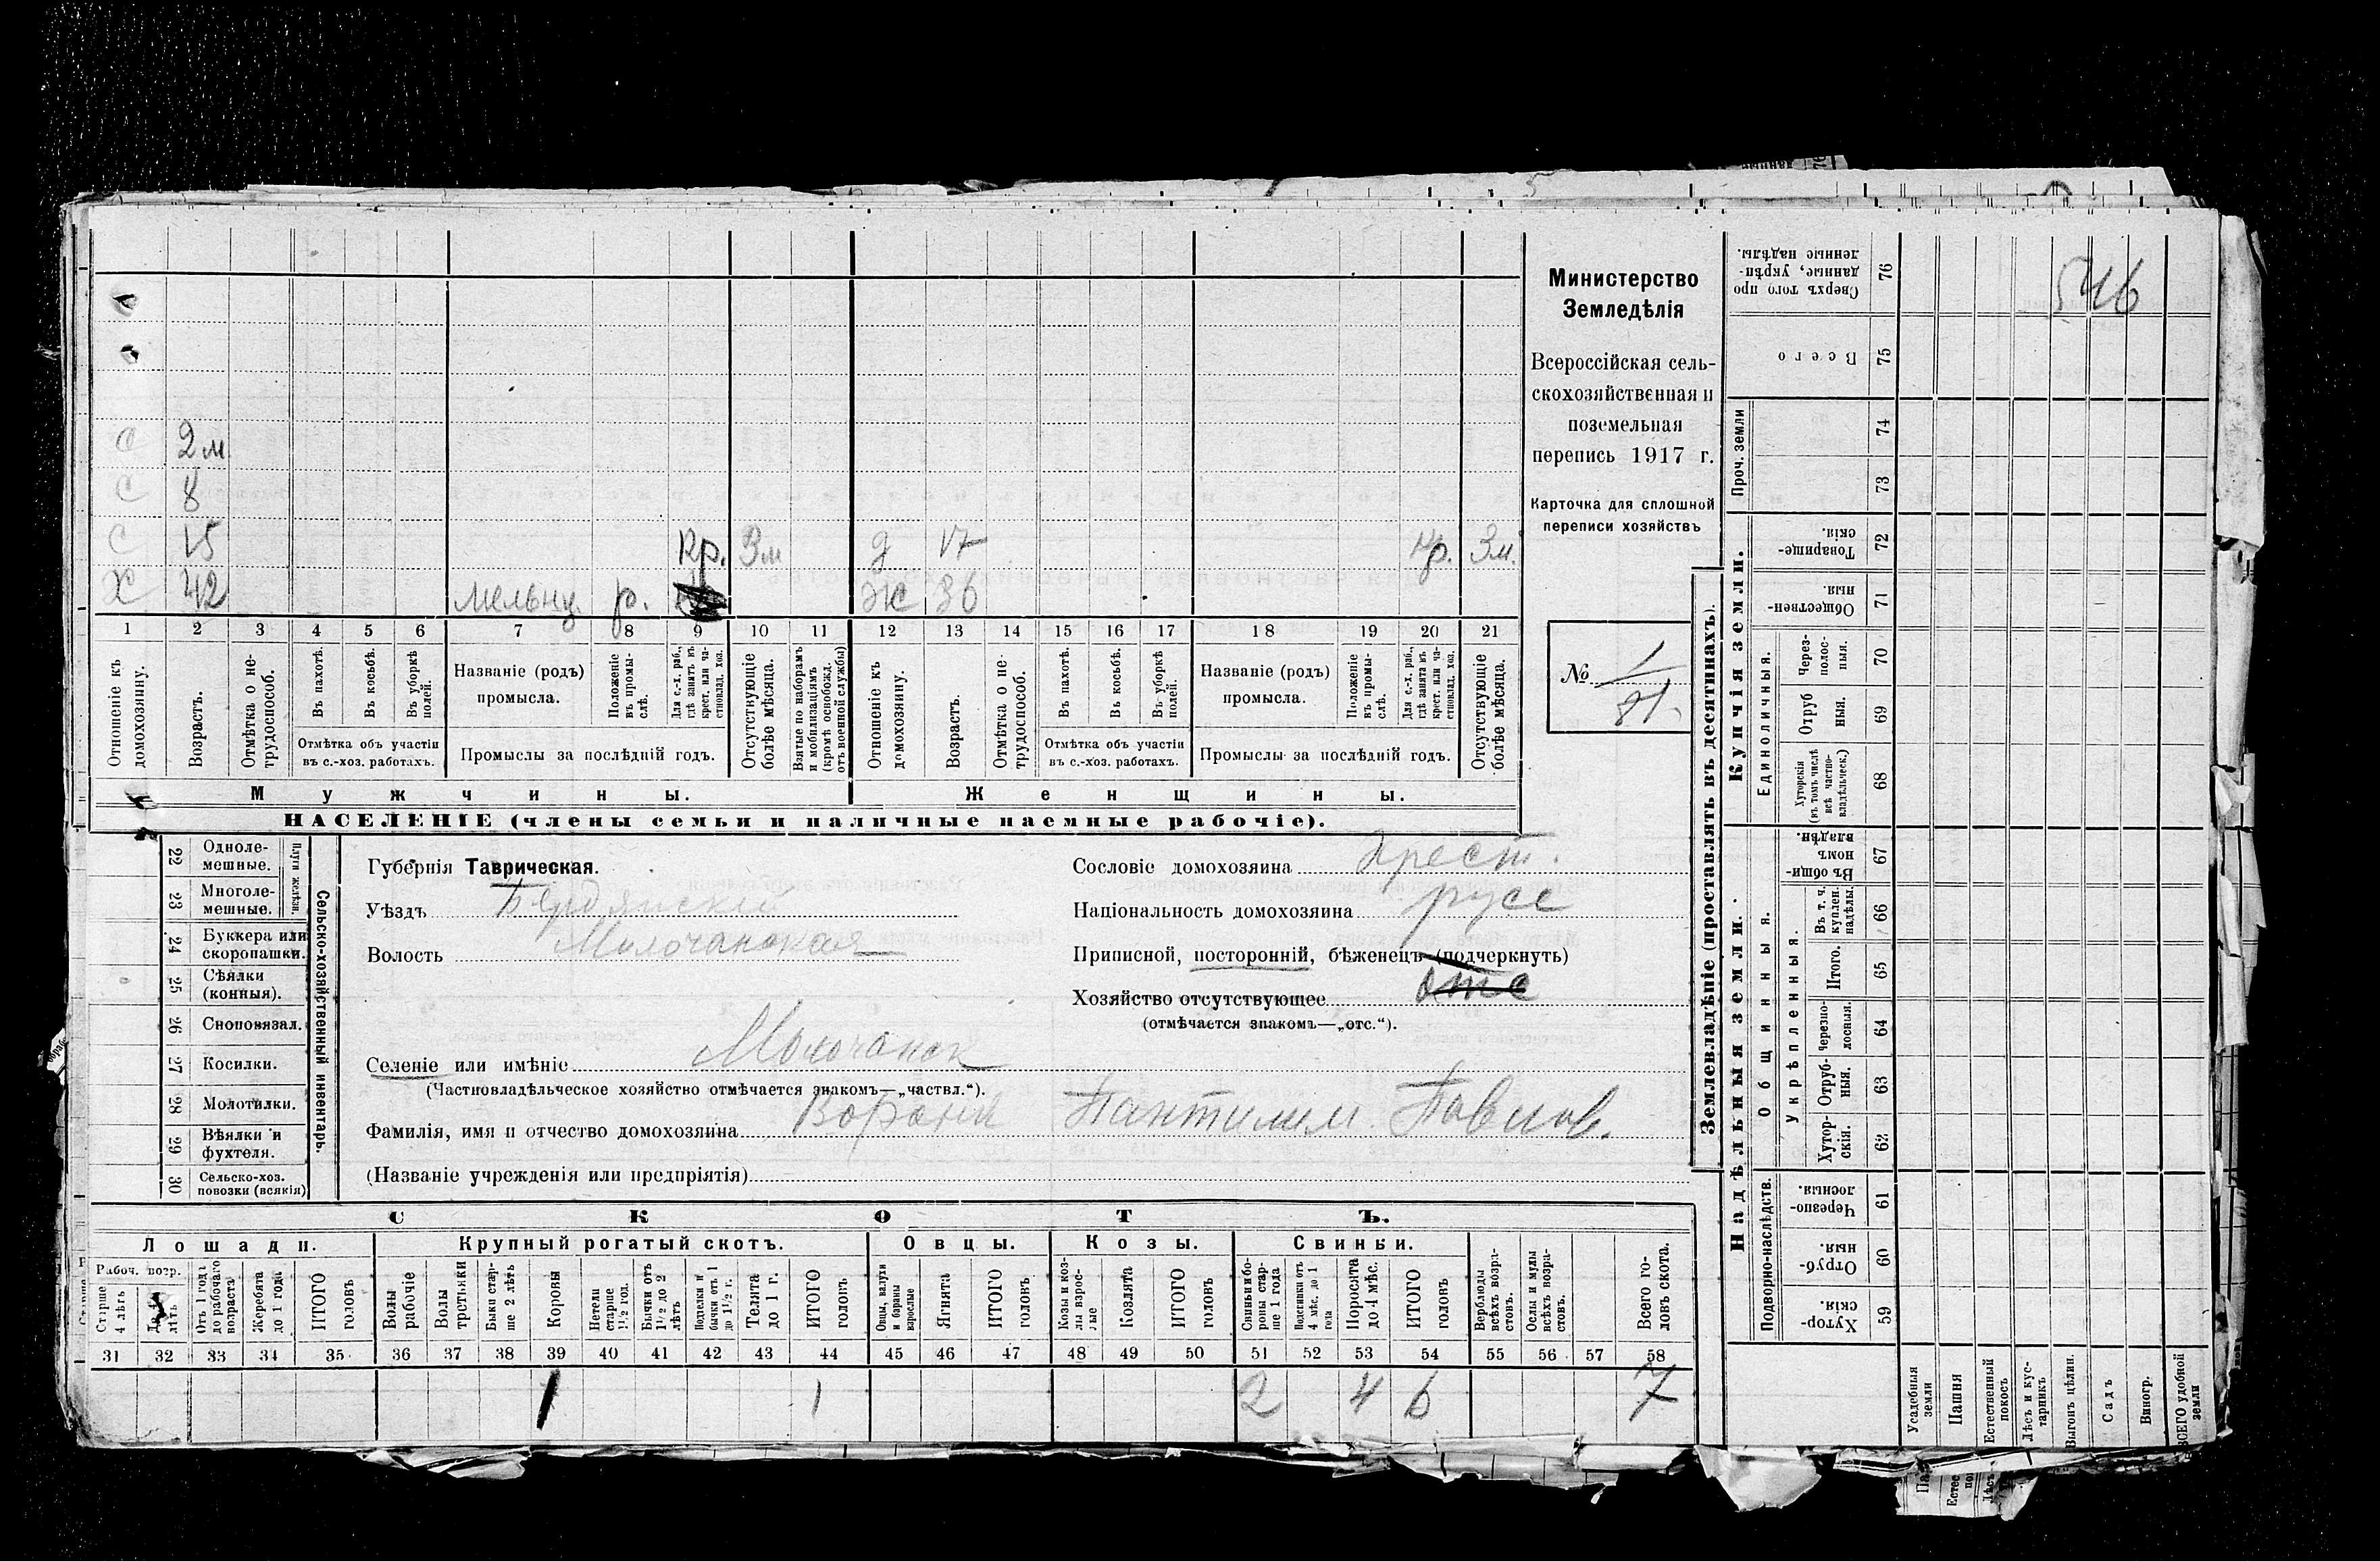 546
Министерство
Земледѣлія
Всероссійская сель-
скохозяйственная и
поземельная
перепись 1917 г.
Карточка для сплошной
переписи хозяйствъ
№ 1/81.
С 2 м
С 8
С 15 Кр. 3м д 17 Кр. 3м.
Х 42 мельн р. Ж 36
1 2 3 4 5 6 7 8 9 10 11 12 13 14 15 16 17 18 19 20 21
Отношеніе къ домохозяину.
Возрастъ.
Отмѣтка о не-трудоспособ.
Въ пахотѣ.
Въ косьбѣ.
Въ уборкѣ полей.
Отмѣтка объ участіи
въ с.-хоз. работахъ.
Названіе (родъ)
промысла.
Положеніе въ промы-слѣ.
Для с.-х. раб., гдѣ занятъ въ крест. или ча-стновлад. хоз.
Промыслы за послѣдній годъ.
Отсутствующіе болѣе мѣсяца.
Взятые по наборамъ и мобилизаціямъ (кромѣ освобожд. отъ военной службы)
Отношеніе къ домохозяину.
Возрастъ.
Отмѣтка о не-трудоспособ.
Въ пахотѣ.
Въ косьбѣ.
Въ уборкѣ полей.
Отмѣтка объ участіи
въ с.-хоз. работахъ.
Названіе (родъ)
промысла.
Положеніе въ промы-слѣ.
Для с.-х. раб., гдѣ занята въ крест. или ча-стновлад. хоз.
Промыслы за послѣдній годъ.
Отсутствующіе болѣе мѣсяца.
Мужчины. Женщины.
НАСЕЛЕНІЕ (члены семьи и наличные наемные рабочіе).
22 Одноле-мешные.
23 Многоле-мешные.
Плуги желѣзн.
24 Буккера или скоропашки.
25 Сѣялки (конныя).
26 Сноповязал.
27 Косилки.
28 Молотилки.
29 Вѣялки и фухтеля.
30 Сельско-хоз. повозки (всякія)
Сельско-хозяйственный инвентарь.
Губернія Таврическая.
Уѣздъ Бердянскій
Волость Молочанская
Сословіе домохозяина крест.
Національность домохозяина русс
Приписной, посторонній, бѣженецъ (подчеркнуть)
Хозяйство отсутствующее отс
(отмѣчается знакомъ—„отс.“).
Селеніе или имѣніе Молочанск
(Частновладѣльческое хозяйство отмѣчается знакомъ—„частвл.“).
Фамилія, имя и отчество домохозяина Пантилим. Павлов.
(Названіе учрежденія или предпріятія)
СКОТЪ.
Лошади. Крупный рогатый скотъ. Овцы. Козы. Свиньи.
Рабоч. возр.
Старше 4 лѣтъ
лѣтъ
Отъ 1 года до рабочаго возраста
Жеребята до 1 года
ИТОГО головъ
Волы рабочіе
Волы третьяки
Быки стар-ше 2 лѣтъ
Коровы
Нетели старше 1½ год.
Бычки отъ 1½ до 2 лѣтъ
Подтелки и бычки отъ 1 до 1½ г.
Телята до 1 г.
ИТОГО головъ
Овцы, валухи и бараны взрослые
Ягнята
ИТОГО головъ
Козы и коз-лы взрос-лые
Козлята
ИТОГО головъ
Свиньи и бо-ровы стар-ше 1 года
Подсвинки отъ 4 мѣс. до 1 года
Поросята до 4 мѣс.
ИТОГО головъ
Верблюды всѣхъ возра-стовъ.
Ослы и мулы всѣхъ возра-стовъ.
Всего го-ловъ скота.
31 32 33 34 35 36 37 38 39 40 41 42 43 44 45 46 47 48 49 50 51 52 53 54 55 56 57 58
1 1 2 4 6 7
Землевладѣніе (проставлять въ десятинахъ).
Надѣльныя земли. Купчія земли.
Проч. земли
Подворно-наслѣдств.
Общинныя.
Укрѣпленныя.
Единоличныя.
76 Сверхъ того про данные, укрѣп-ленные надѣлы.
75 Всего
74
73
72 Товарище-скія.
71 Обществен-ныя.
70 Через-полос-ныя.
69 Отруб ныя.
68 Хуторскія (въ томъ числѣ всѣ частно-владѣльческ.)
67 Въ общи-номъ владѣн.
66 Въ т. ч. куплен. надѣлы.
65 Итого.
64 Черезпо-лосныя.
63 Отруб-ныя.
62 Хутор-скія.
61 Черезпо-лосныя.
60 Отруб-ныя.
59 Хутор-скія.
Усадебныя земли
Пашня
Естественный покосъ
Лѣсъ и кус-тарникъ
Выгонъ цѣлин.
Садъ
Виногр.
ВСЕГО удобной земли